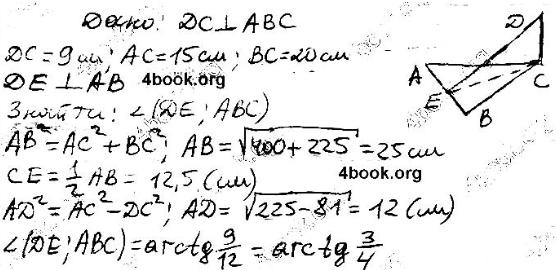 Дано: DC⊥ABC
DC=9см; AC=15см; BC=20см
DE⊥AB 4book.org
Знайти: ∠(DE; ABC)
AB²=AC²+BC²; AB=√400+225=25см
CE=½AB=12,5(см)
4book.org
AD²=AC²-DC²; AD=√225-81=12(см)
∠(DE; ABC)=arctg 9/12=arctg 3/4
D
A
C
E
B